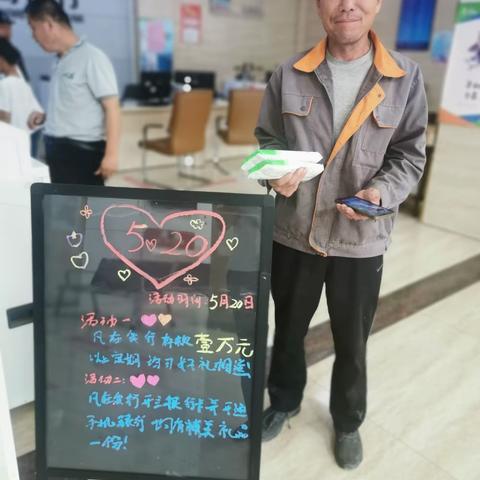 5.20
活动时间:5月20日
活动一、
凡在我行存款壹万元
以上定期均可好礼相送
活动二:
凡在我行开立银行卡并开通
手机银行均有精美礼品
一份!